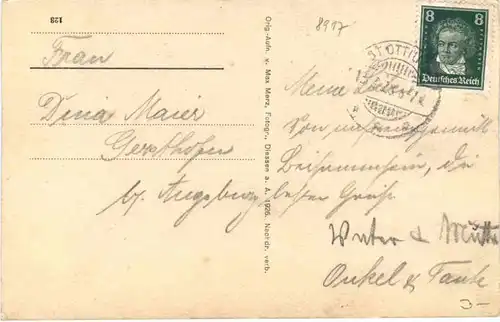 128
Frau
Dena Maier
Gersthofen
by Augsburg
Orig.-Aufn. v. Max Menz, Fotogr., Diessen a. A. 1926. Nachdr. verb.
8917
ST. OTTIL
8 8
Deutsches Reich
Meine
Von
Beisammensein, die
besten Grüße
Vater & Mutter
Onkel & Tante